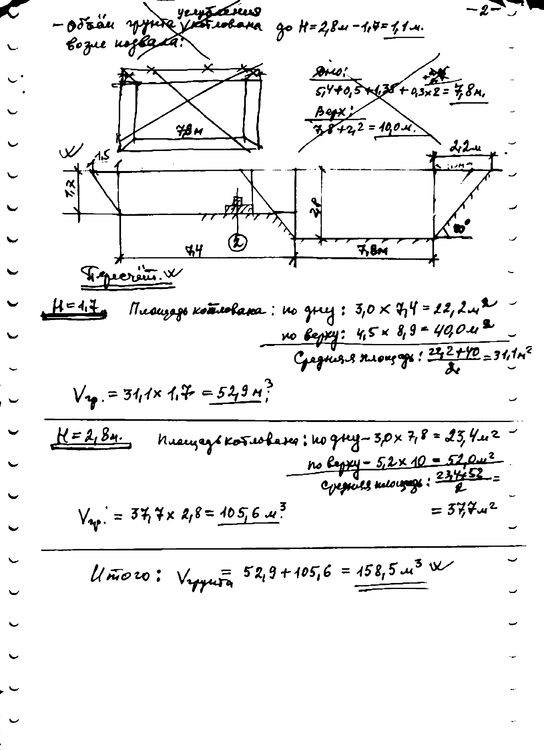 - 2 -
углубления
- Объём грунта котлована до H = 2,8м - 1,7 = 1,1 м.
возле подвала:
Дно:
5,4 + 0,5 + 1,35 + 0,3 x 2 = 7,8 м.
Верх:
7,8 + 2,2 = 10,0 м.
7,8 м
1,5
2,2 м
1,7
2,8
2
60°
7,4
7,8 м
Пересчёт.
H = 1,7
Площадь котлована: по дну: 3,0 x 7,4 = 22,2 м²
по верху: 4,5 x 8,9 = 40,0 м²
Средняя площадь: 22,2 + 40 / 2 = 31,1 м²
Vгр. = 31,1 x 1,7 = 52,9 м³.
H = 2,8 м.
Площадь котлована: по дну - 3,0 x 7,8 = 23,4 м²
по верху - 5,2 x 10 = 52,0 м²
Средняя площадь: 23,4 x 52 / 2 =
= 37,7 м²
Vгр. = 37,7 x 2,8 = 105,6 м³.
Итого: Vгрунта = 52,9 + 105,6 = 158,5 м³